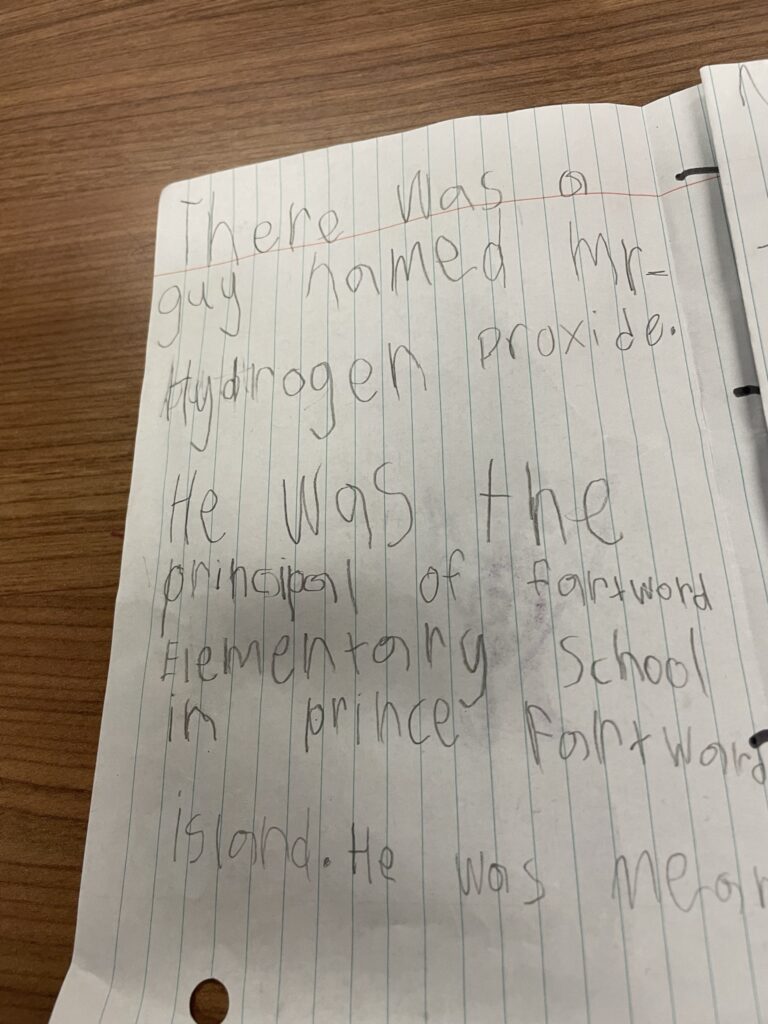 There was a
guy named Mr-
Hydrogen proxide.
He was the
principal of fartword
Elementary School
in prince Fartward
island. He was mean